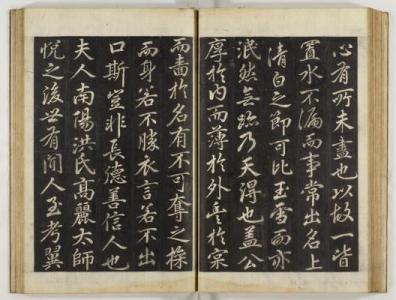 心有所未盡也以故一皆
置水不漏而事常出名上
清白之節可比玉雪而亦
泯然無跡乃天得也蓋公
厚於内而薄於外豊於實
而嗇於名有不可奪之操
而身若不勝衣言若不出
口斯豈非長德善信人也
夫人南陽洪氏高麗太師
悅之後世有聞人至考翼